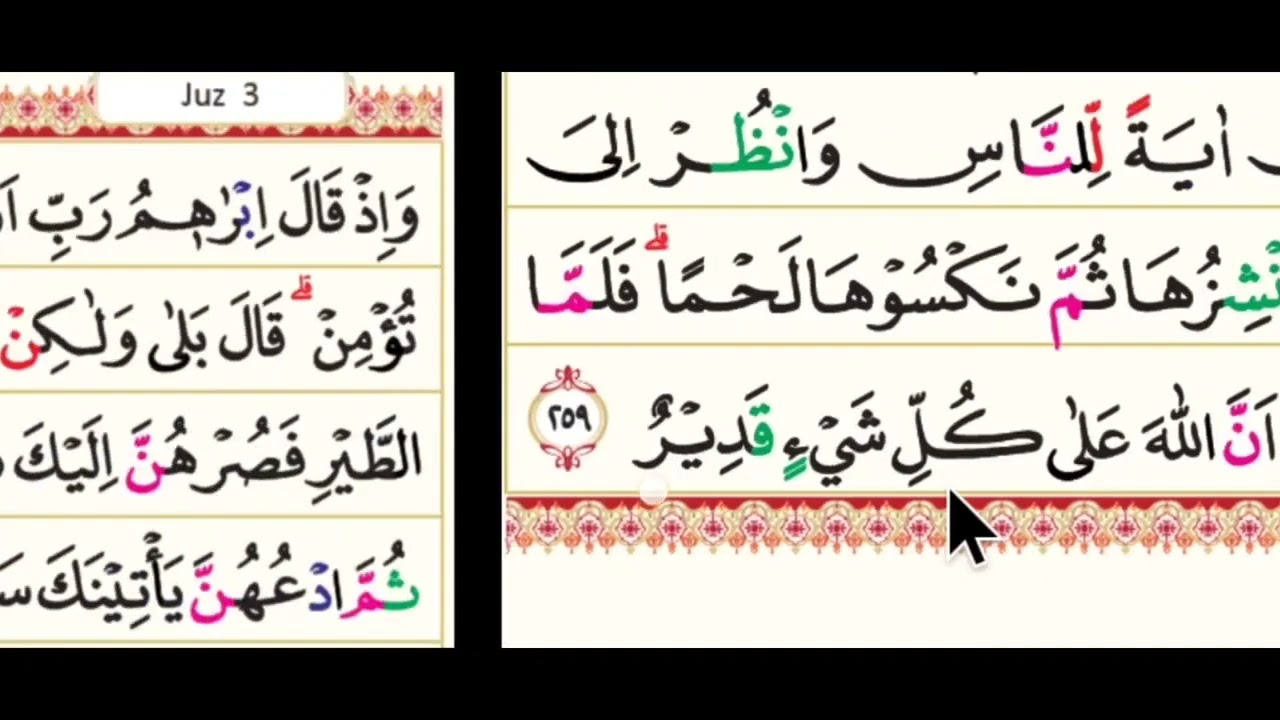 اٰيَةً لِّلنَّاسِ وَانْظُرْ اِلَى
نْشِزُهَا ثُمَّ نَكْسُوْهَا لَحْمًا ۗ فَلَمَّا
اَنَّ اللّٰهَ عَلٰى كُلِّ شَيْءٍ قَدِيْرٌ ٢٥٩
Juz 3
وَاِذْ قَالَ اِبْرٰهٖمُ رَبِّ
تُؤْمِنْ ۗ قَالَ بَلٰى وَلٰكِنْ
الطَّيْرِ فَصُرْهُنَّ اِلَيْكَ
ثُمَّ ادْعُهُنَّ يَأْتِيْنَكَ